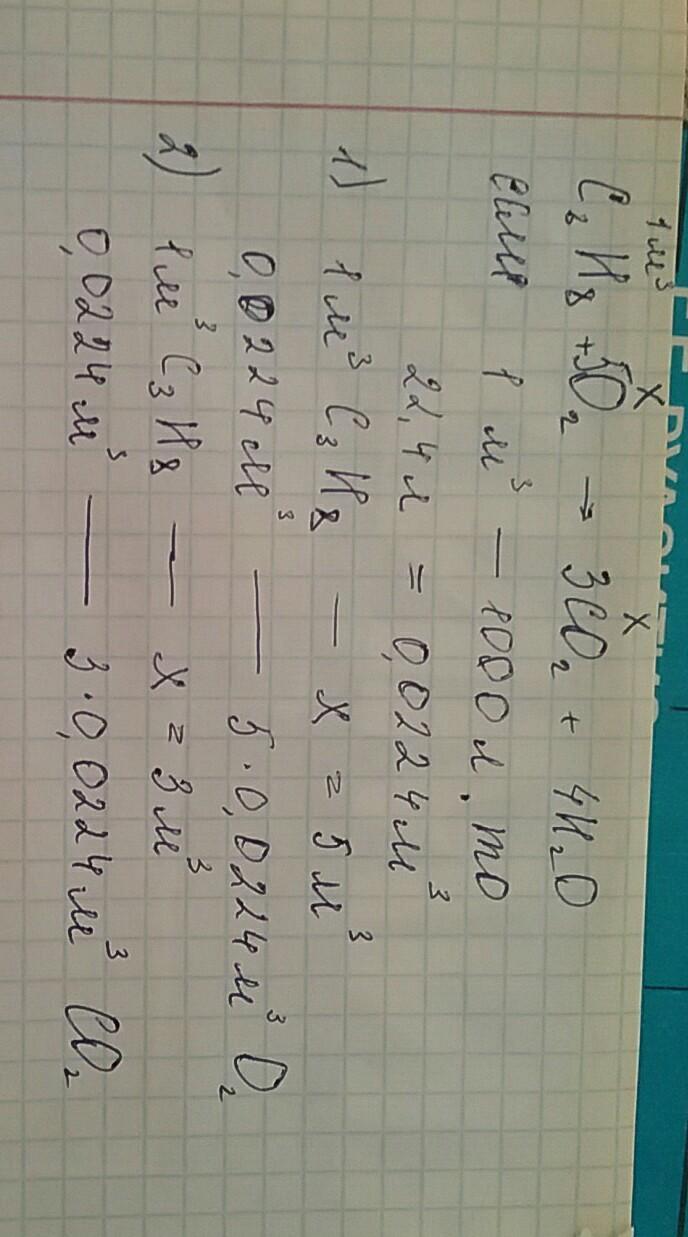 1м³ x x
C₃H₈ + 5O₂ → 3CO₂ + 4H₂O
если 1 м³ — 1000 л. то
22,4 л = 0,0224 м³
1) 1 м³ C₃H₈ — x = 5 м³
0,0224 м³ — 5·0,0224 м³ O₂
2) 1 м³ C₃H₈ — x = 3 м³
0,0224 м³ — 3·0,0224 м³ CO₂